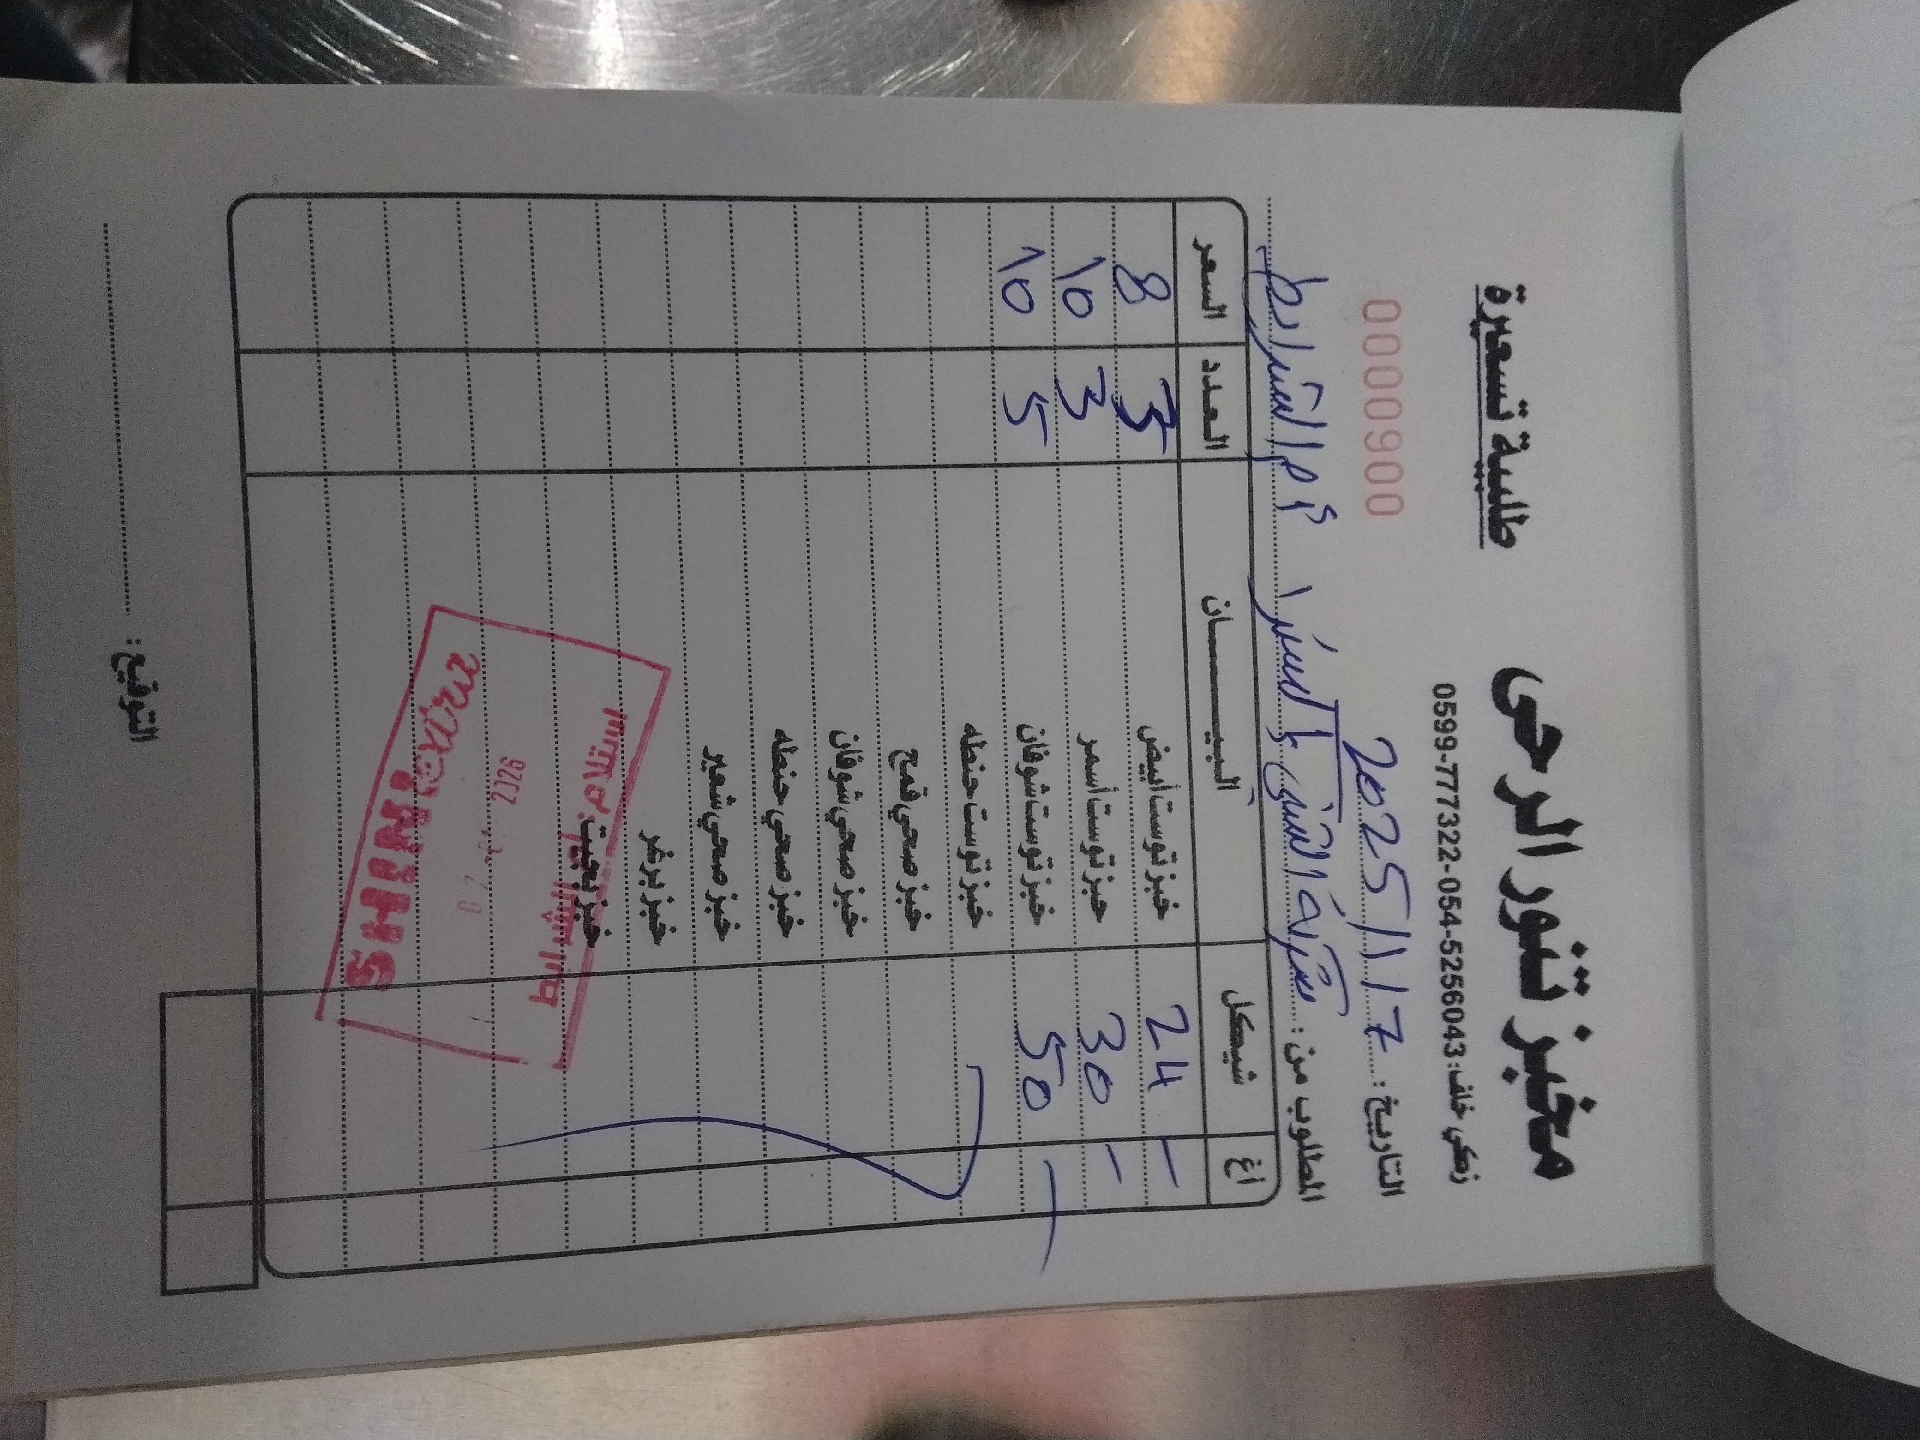 مخبز تنور الرحى
طلبية تسعيرة
زمكي خلف: 0599-777322-054-5256043
التاريخ: 2025/1/17
0000900
المطلوب من: شركة الشني إكسبرس أم الشرايط
أغ شيكل البيـــــان العدد السعر
- 24 خبز توست أبيض 3 8
- 30 خبز توست أسمر 3 10
- 50 خبز توست شوفان 5 10
خبز توست حنطه
خبز صحي قمح
خبز صحي شوفان
خبز صحي حنطه
خبز صحي شعير
خبز برغر
خبز بجيت
استلام
الشرايط
2026
SHINI extra
التوقيع: